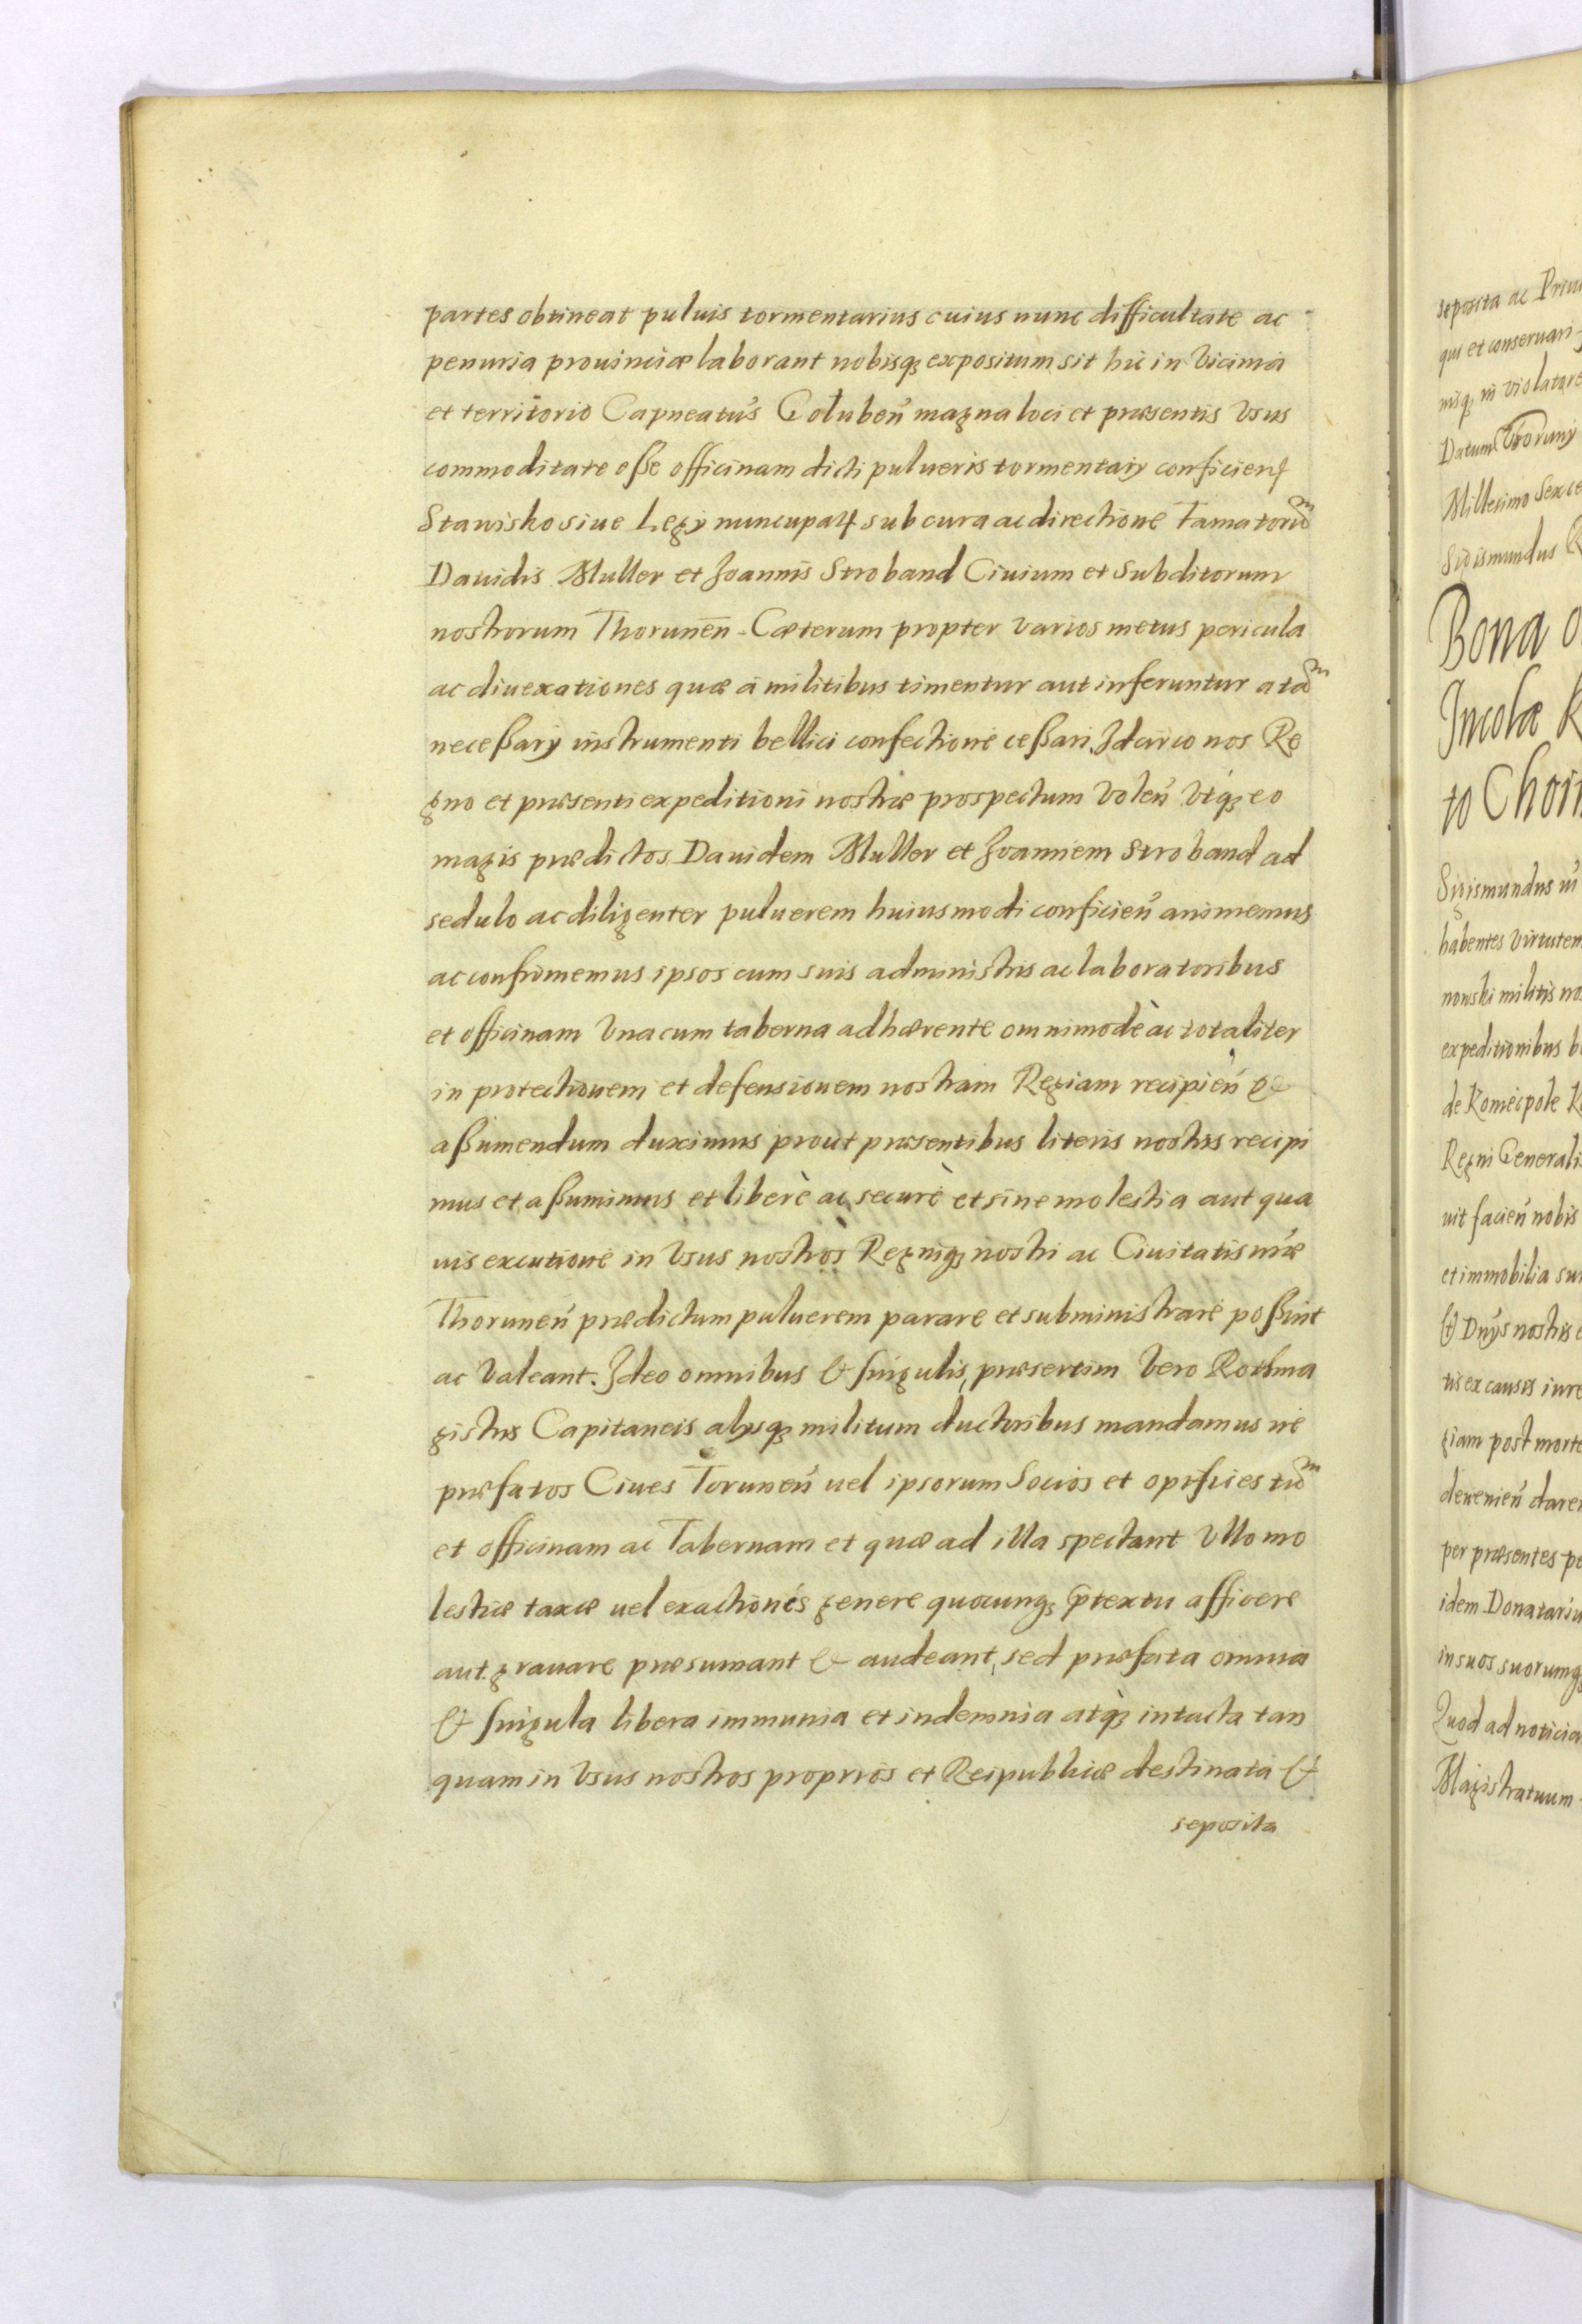 partes obtineat puluis tormentarius cuius nunc difficultate ac
penuria prouinciæ laborant nobisq₃ expositum sit hic in Vicinia
et territorio Capneatus Goluben̄ magna loci et præsentis Vsus
commoditate eſse officinam dicti pulueris tormentarij conficien̄
Stawisko siue Legij nuncupat sub cura ac directione Famatorū
Dauidis Muller et Joannis Stroband Ciuium et Subditorum
nostrorum Thorunen̄. Cæterum propter varios metus pericula
ac diuexationes quæ à militibus timentur aut inferuntur a tā
neceſsarij instrumenti bellici confectione ceſsari. Idcirco nos Re
gno et præsenti expeditioni nostræ prospectum Volen̄ Vtq₃ eo
magis prædictos Dauidem Muller et Joannem Stroband ad
sedulo ac diligenter puluerem huiusmodi conficien̄ animemus
ac confirmemus ipsos cum suis administris ac laboratoribus
et officinam Vna cum taberna adhærente omnimodè ac totaliter
in protectionem et defensionem nostram Regiam recipien̄ &
aſsumendum duximus prout præsentibus literis nostris recipi
mus et aſsumimus et liberè ac securè et sine molestia aut qua
uis excutione in Vsus nostros Regniq₃ nostri ac Ciuitatis nr̄æ
Thorunen̄ prædictum puluerem parare et subministrare poſsint
ac Valeant. Ideo omnibus & singulis, præsertim Vero Rothma
gistris Capitaneis alijsq₃ militum ductoribus mandamus ne
præfatos Ciues Torunen̄ uel ipsorum Socios et opifices tū
et officinam ac Tabernam et quæ ad illa spectant Vllo mo
lestiæ taxæ uel exactionis genere quocunq₃ p̄textu afficere
aut grauare præsumant & audeant, sed præfata omnia
& singula libera immunia et indemnia atq₃ intacta tan
quam in Vsus nostros proprios et Reipublicæ destinata &
seposita
seposita ac Priui
qui et conseruari
nisq₃ in violatare
Datum Thorunij
Millesimo Sexce
Sigismundus R
Bona o
Incolæ K
to Choin
Sigismundus III
habentes Virtutem
nowski militis no
expeditionibus b
de Koniecpole K
Regni Generali
uit facien̄ nobis
et immobilia su
Dn̄ys nostris e
tis ex causis iure
giam post morte
deuenien̄ dare
per præsentes pe
idem Donatariu
in suos suorumq₃
Quod ad noticia
Magistratuum